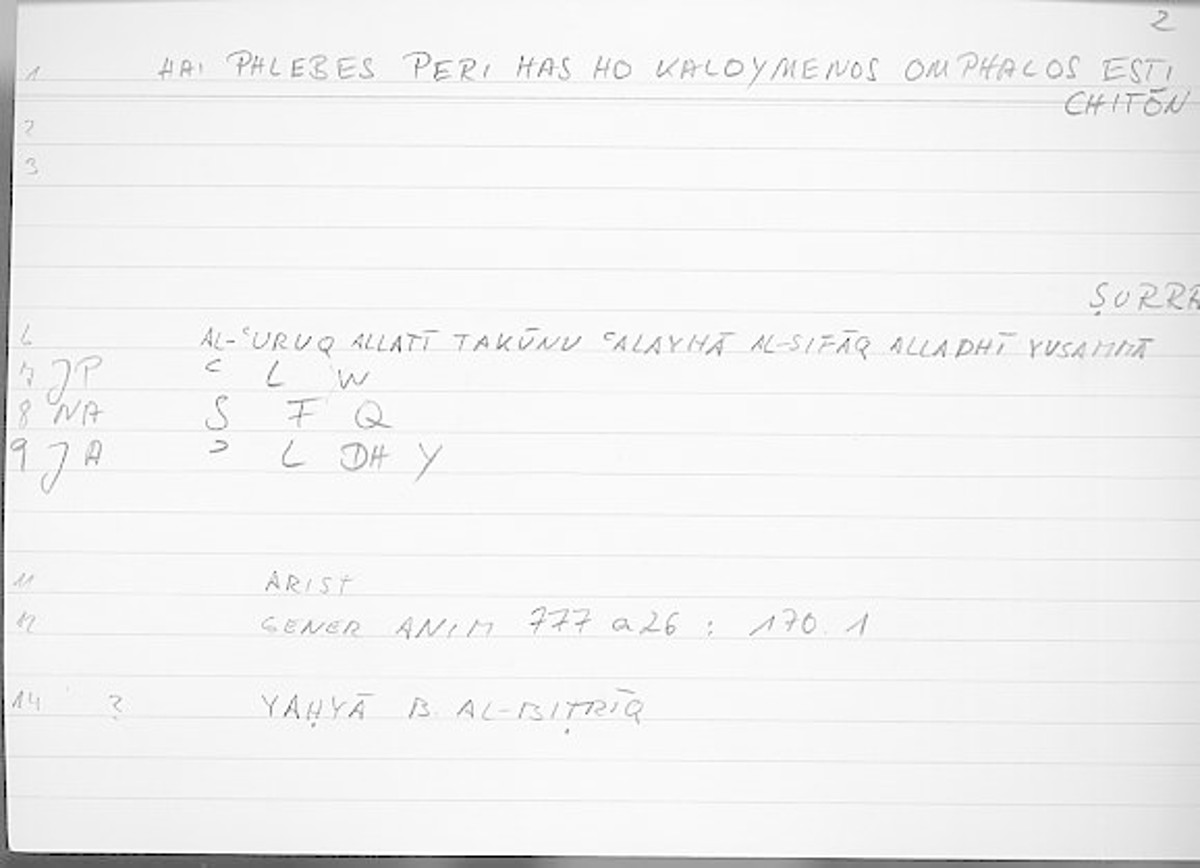 2
1 HAI PHLEBES PERI HAS HO KALOYMENOS OMPHALOS ESTI
CHITŌN
2
3
ṢURRA
YUSAMMĀ
AL-ʿURUQ ALLATĪ TAKŪNU ʿALAYHĀ AL-SIFĀQ ALLADHĪ
7 JP ʿ L W
8 NA S F Q
9 JA ʾ L DH Y
11 ARIST
12 GENER ANIM 777 a26 : 170.1
14 ? YAḤYĀ B. AL-BIṬRĪQ